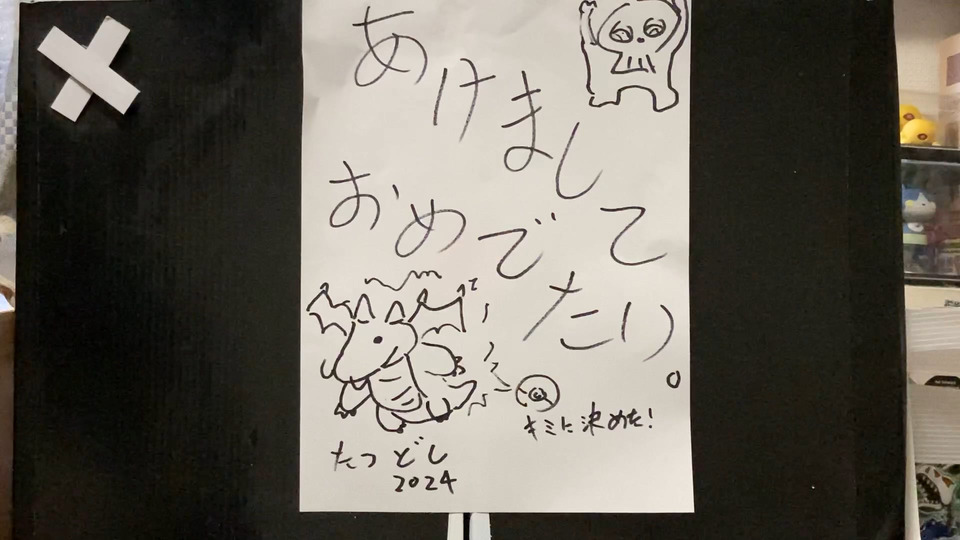 あけまして
おめでたり。
キミに決めた!
たつどし
2024